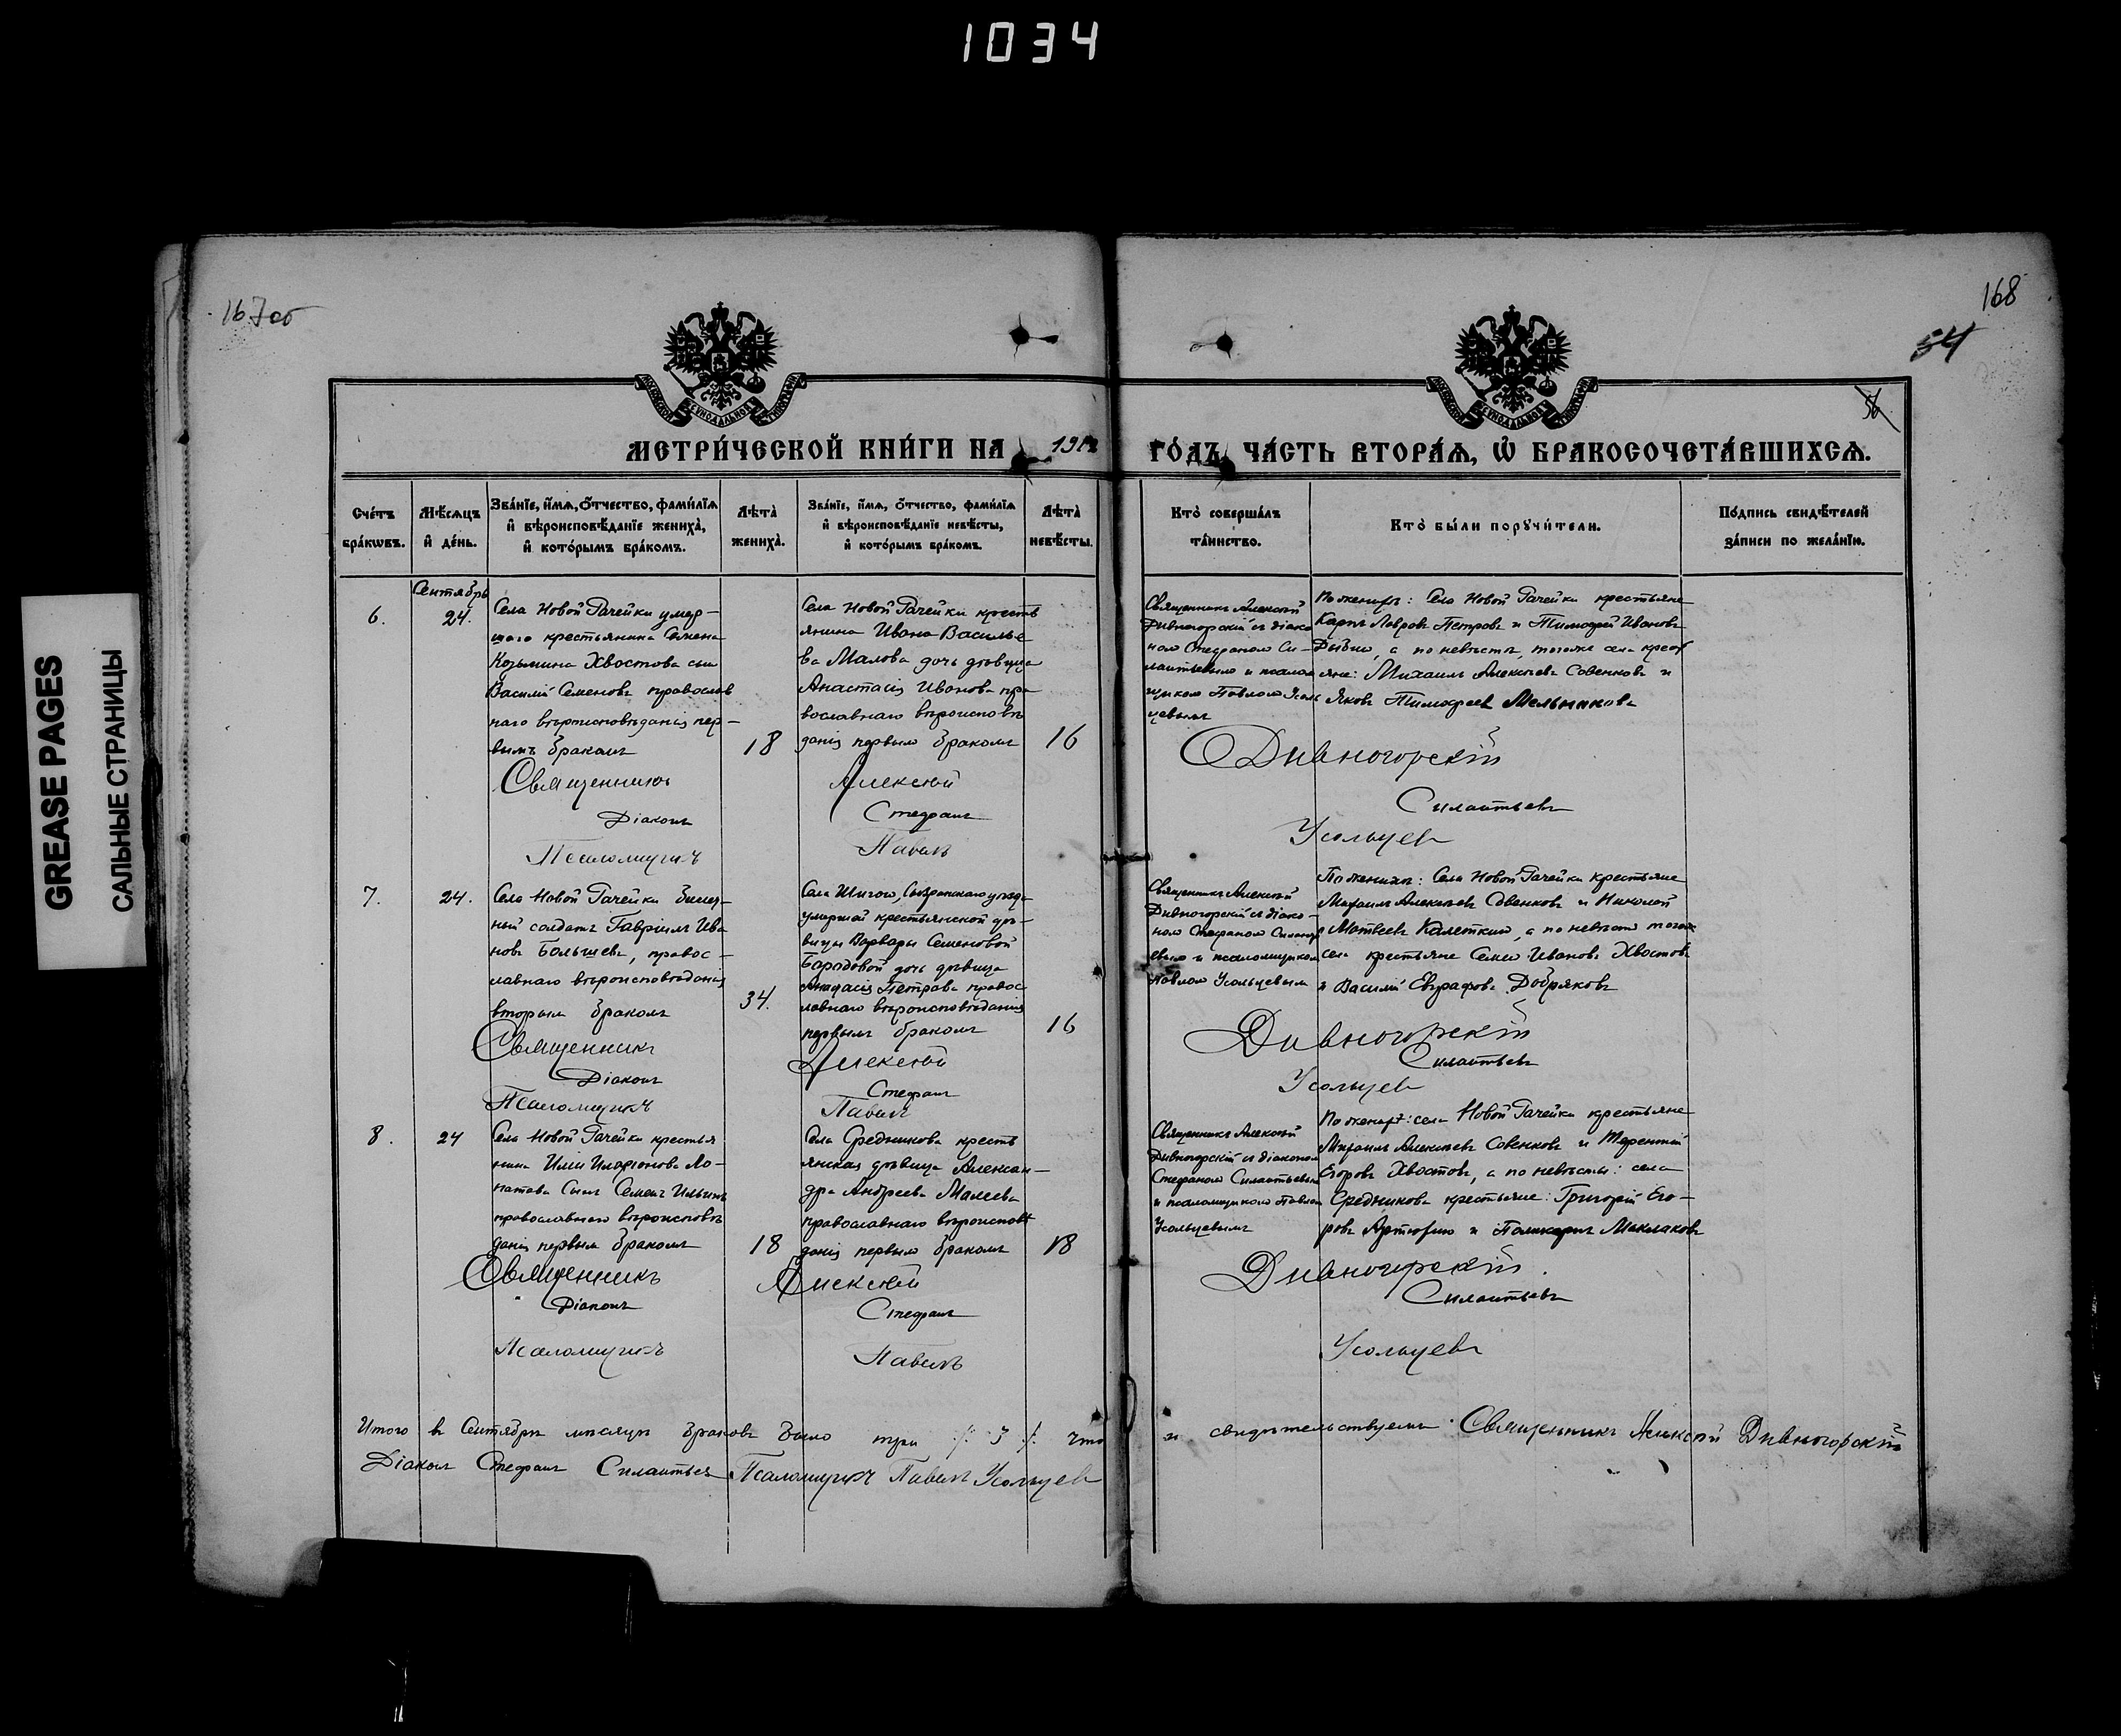 1034
GREASE PAGES
САЛЬНЫЕ СТРАНИЦЫ
167об
168
54
56
МЕТРИ́ЧЕСКОЙ КНИ́ГИ НА 1912 ГО́ДЪ, ЧА́СТЬ ВТОРА́Я, Ѽ БРАКОСОЧЕТА́ВШИХСЯ.
Сче́тъ бра́кωвъ.
Мѣ́сяцъ и҆ де́нь.
Зва́нїе, и҆́мя, ѻ҆́тчество, фами́лїя и҆ вѣроисповѣ́данїе жениха̀, и҆ кото́рымъ бра́комъ.
Лѣта̀ жениха̀.
Зва́нїе, и҆́мя, ѻ҆́тчество, фами́лїя и҆ вѣроисповѣ́данїе невѣ́сты, и҆ кото́рымъ бра́комъ.
Лѣта̀ невѣ́сты.
Кто̀ соверша́лъ та́инство.
Кто̀ бы́ли порꙋчи́тели.
По́дпись свидѣ́телей за́писи по жела́нїю.
Сентябрь
6.
24.
Села Новой Рачейки умер-
шаго крестьянина Семена
Козьмина Хвостова сын
Василій Семеновъ православ
наго вѣроисповѣданія пер-
вымъ бракомъ
18
Села Новой Рачейки кресть
янина Ивана Василье
ва Малова дочь дѣвица
Анастасія Иванова пра
вославнаго вѣроисповѣ
данія первымъ бракомъ
16
Священникъ Алексій
Дивногорскій съ діако
номъ Стефаномъ Си-
лантьевымъ и псалом
щикомъ Павломъ Усоль
цевымъ
По женихѣ: Села Новой Рачейки крестьяне
Карпъ Лавровъ Петровъ и Тимофей Ивановъ
а по невѣстѣ, тогоже села крест
яне: Михаилъ Алексѣевъ Совенковъ и
Яковъ Тимофеевъ Мельниковъ
Священникъ Алексій Дивногорскій
Діаконъ Стефанъ Силантьевъ
Псаломщикъ Павелъ Усольцевъ
7.
24.
Села Новой Рачейки
ный солдатъ Гавріилъ Ива
новъ Большевъ, правос-
лавнаго вѣроисповѣданія
вторымъ бракомъ
34.
Села Шигонъ, Сызранскаго уѣзда
умершей крестьянской дѣ-
вицы Варвары Семеновой
дочь дѣвица
Петрова правос
лавнаго вѣроисповѣданія
первымъ бракомъ
16
Священникъ Алексій
Дивногорскій съ діако-
номъ Стефаномъ Силанть
евымъ и псаломщикомъ
Павломъ Усольцевымъ
По женихѣ: Села Новой Рачейки крестьяне
Михаилъ Алексѣевъ Совенковъ и Николай
Матвеевъ Калеткинъ, а по невѣстѣ тогоже
села крестьяне Семенъ Ивановъ Хвостовъ
и Василій Евграфовъ Добряковъ
Священникъ Алексій Дивногорскій
Діаконъ Стефанъ Силантьевъ
Псаломщикъ Павелъ Усольцевъ
8.
24
Села Новой Рачейки крестья
нина Иліи Иларіонова Ло-
патова сынъ Семенъ Ильинъ
православнаго вѣроисповѣ
данія первымъ бракомъ
18
Села Средникова кресть
янская дѣвица Алексан-
дра Андреева Малеева
православнаго вѣроисповѣ
данія первымъ бракомъ
18
Священникъ Алексій
Дивногорскій съ діакономъ
Стефаномъ Силантьевымъ
и псаломщикомъ Павломъ
Усольцевымъ
По женихѣ: села Новой Рачейки крестьяне
Михаилъ Алексѣевъ Совенковъ и Терентій
Егоровъ Хвостовъ, а по невѣсты: села
Средникова крестьяне: Григорій Его-
ровъ и Поликарпъ Маклаковъ
Священникъ Алексій Дивногорскій
Діаконъ Стефанъ Силантьевъ
Псаломщикъ Павелъ Усольцевъ
Итого въ Сентябрѣ мѣсяцѣ браковъ было три /: 3 :/ что и свидѣтельствуемъ Священникъ Алексій Дивногорскій
Діаконъ Стефанъ Силантьевъ Псаломщикъ Павелъ Усольцевъ